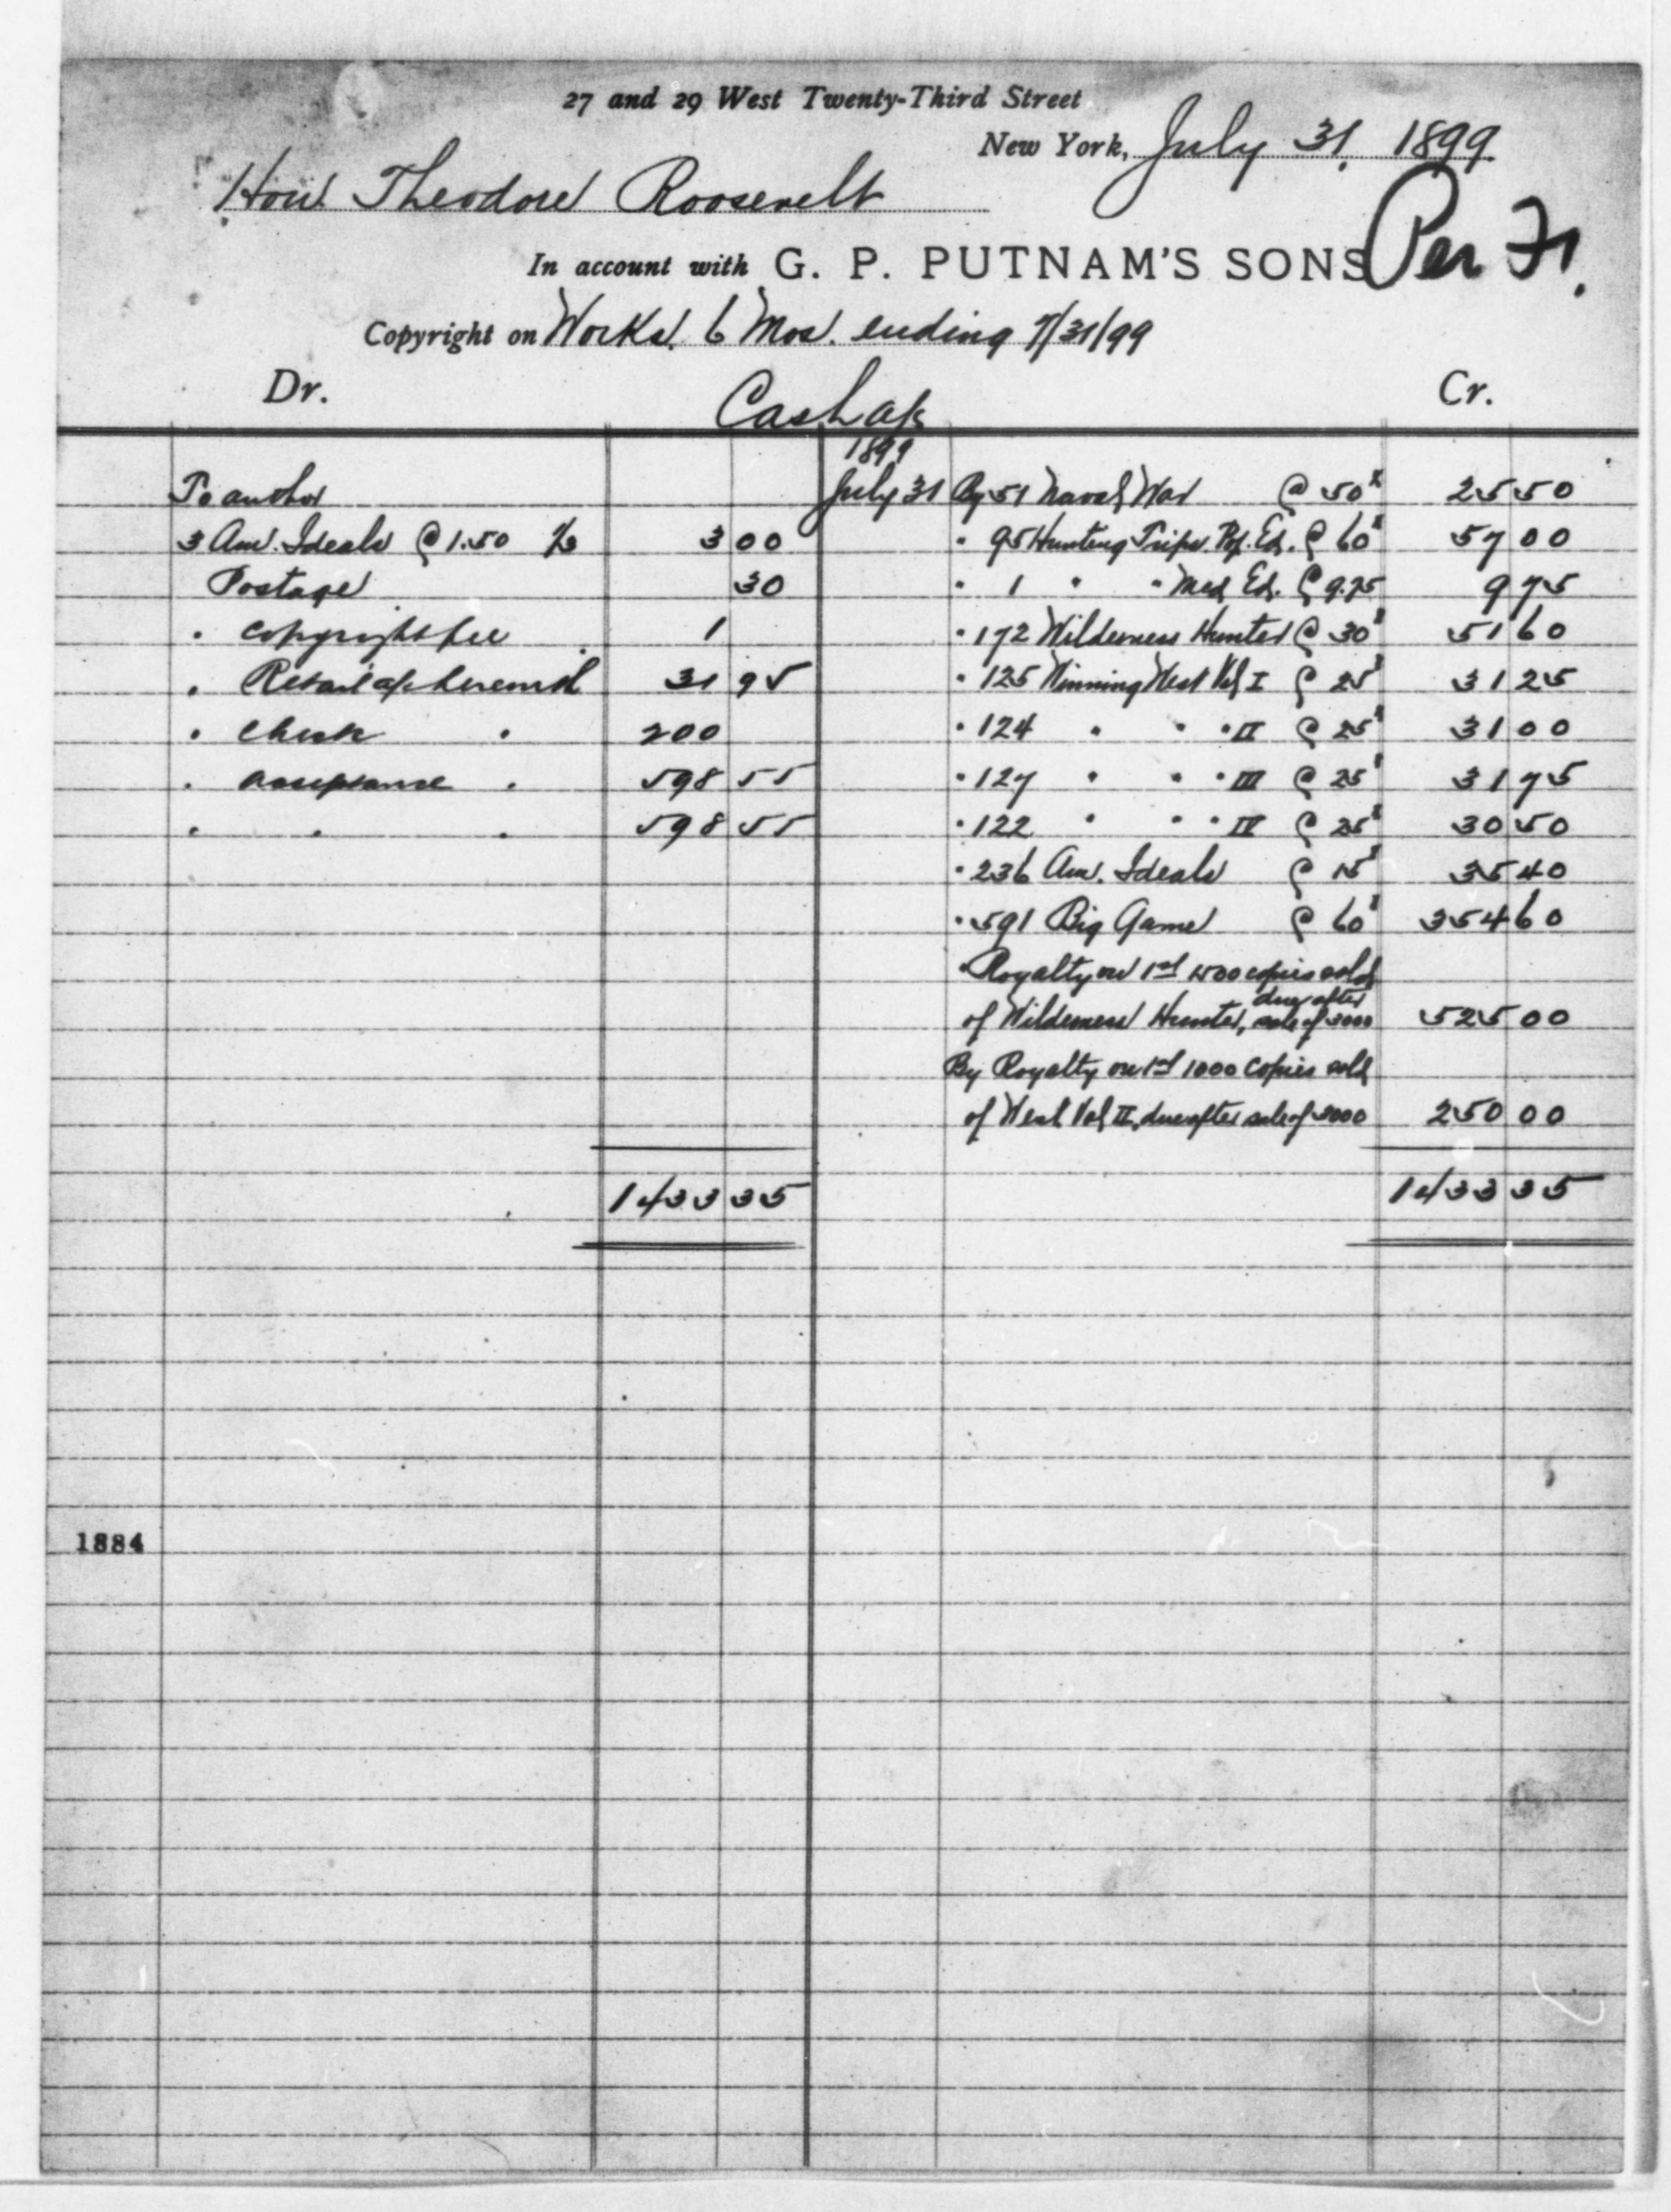 27 and 29 West Twenty-Third Street
New York, July 31, 1899
Hon. Theodore Roosevelt
Per F.
In account with G. P. PUTNAM'S SONS
Copyright on Works. 6 Mos. ending 7/31/99
Dr. Cash a/c Cr.
1899
To author
July 31 By 51 Naval War @ 50¢ 25 50
3 Am. Ideals @ 1.50 1/3 3 00
" 95 Hunting Trips Pop. Ed. @ 60¢ 57 00
Postage 30
" 1 " " Med Ed. @ 9.75 9 75
" copyright fee 1
" 172 Wilderness Hunter @ 30¢ 51 60
" Retail a/c herewith 31 95
" 125 Winning West Vol I @ 25¢ 31 25
" Check " 200
" 124 " " " II @ 25¢ 31 00
" acceptance " 598 55
" 127 " " " III @ 25¢ 31 75
" " " 598 55
" 122 " " " IV @ 25¢ 30 50
" 236 Am. Ideals @ 15¢ 35 40
" 591 Big Game @ 60¢ 354 60
" Royalty on 1st 1500 copies sold
of Wilderness Hunter, due after sale of 3000 525 00
By Royalty on 1st 1000 copies sold
of West Vol II, due after sale of 3000 250 00
1433 35 1433 35
1884